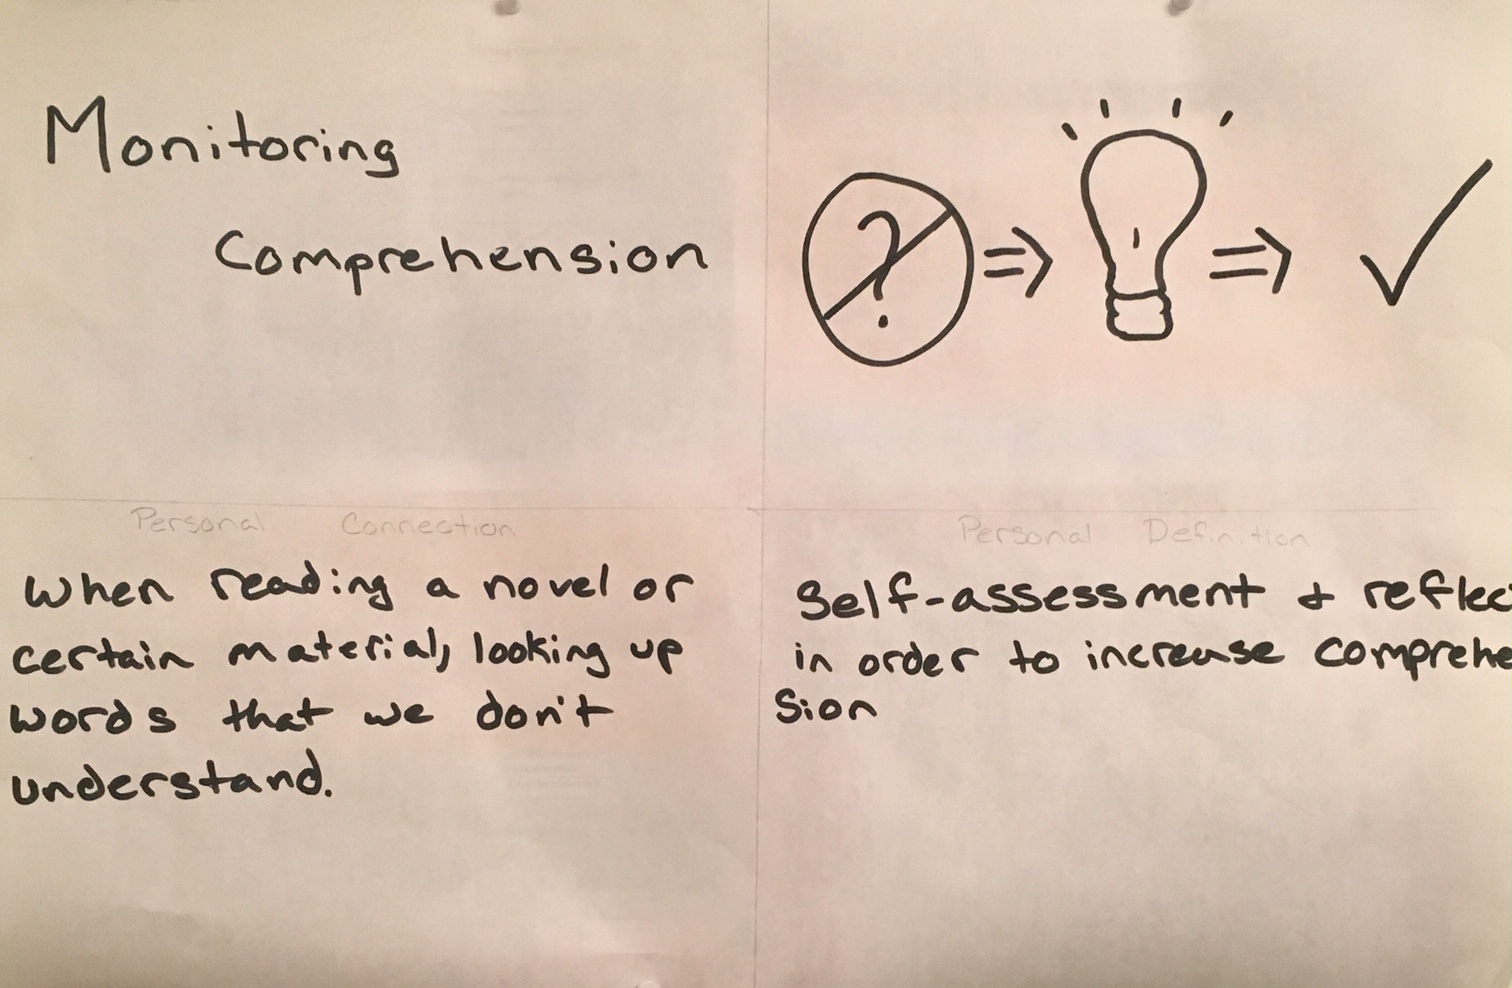 Monitoring
Comprehension
?
Personal Connection
When reading a novel or
certain material, looking up
words that we don't
understand.
Personal Definition
Self-assessment & reflec
in order to increase comprehe
sion